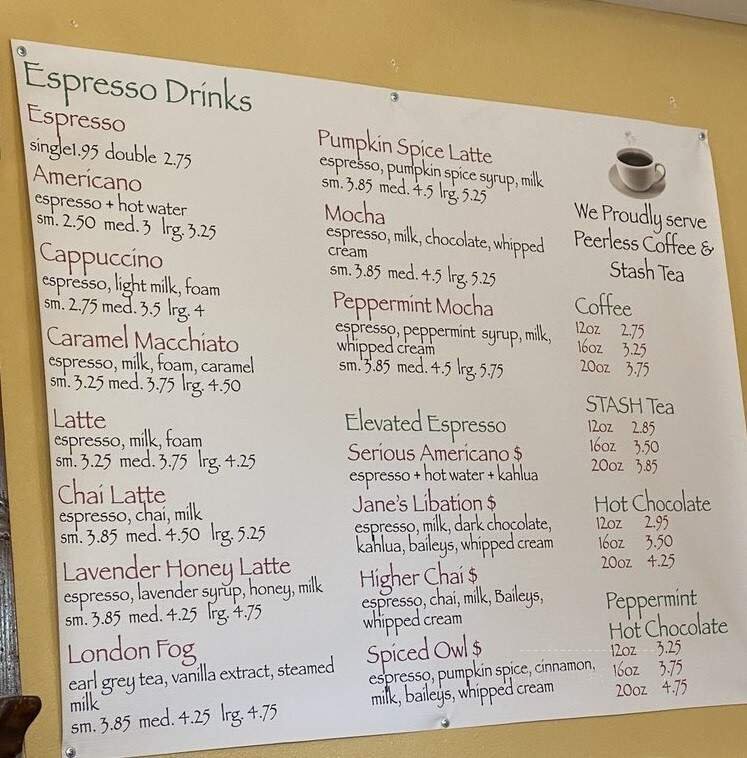 Espresso Drinks
Espresso
single1.95 double 2.75
Americano
espresso + hot water
sm. 2.50 med. 3 lrg. 3.25
Cappuccino
espresso, light milk, foam
sm. 2.75 med. 3.5 lrg. 4
Caramel Macchiato
espresso, milk, foam, caramel
sm. 3.25 med. 3.75 lrg. 4.50
Latte
espresso, milk, foam
sm. 3.25 med. 3.75 lrg. 4.25
Chai Latte
espresso, chai, milk
sm. 3.85 med. 4.50 lrg. 5.25
Lavender Honey Latte
espresso, lavender syrup, honey, milk
sm. 3.85 med. 4.25 lrg. 4.75
London Fog
earl grey tea, vanilla extract, steamed
milk
sm. 3.85 med. 4.25 lrg. 4.75
Pumpkin Spice Latte
espresso, pumpkin spice syrup, milk
sm. 3.85 med. 4.5 lrg. 5.25
Mocha
espresso, milk, chocolate, whipped
cream
sm. 3.85 med. 4.5 lrg. 5.25
Peppermint Mocha
espresso, peppermint syrup, milk,
whipped cream
sm. 3.85 med. 4.5 lrg. 5.75
Elevated Espresso
Serious Americano $
espresso + hot water + kahlua
Jane's Libation $
espresso, milk, dark chocolate,
kahlua, baileys, whipped cream
Higher Chai $
espresso, chai, milk, Baileys,
whipped cream
Spiced Owl $
espresso, pumpkin spice, cinnamon,
milk, baileys, whipped cream
We Proudly serve
Peerless Coffee &
Stash Tea
Coffee
12oz 2.75
16oz 3.25
20oz 3.75
STASH Tea
12oz 2.85
16oz 3.50
20oz 3.85
Hot Chocolate
12oz 2.95
16oz 3.50
20oz 4.25
Peppermint
Hot Chocolate
12oz 3.25
16oz 3.75
20oz 4.75